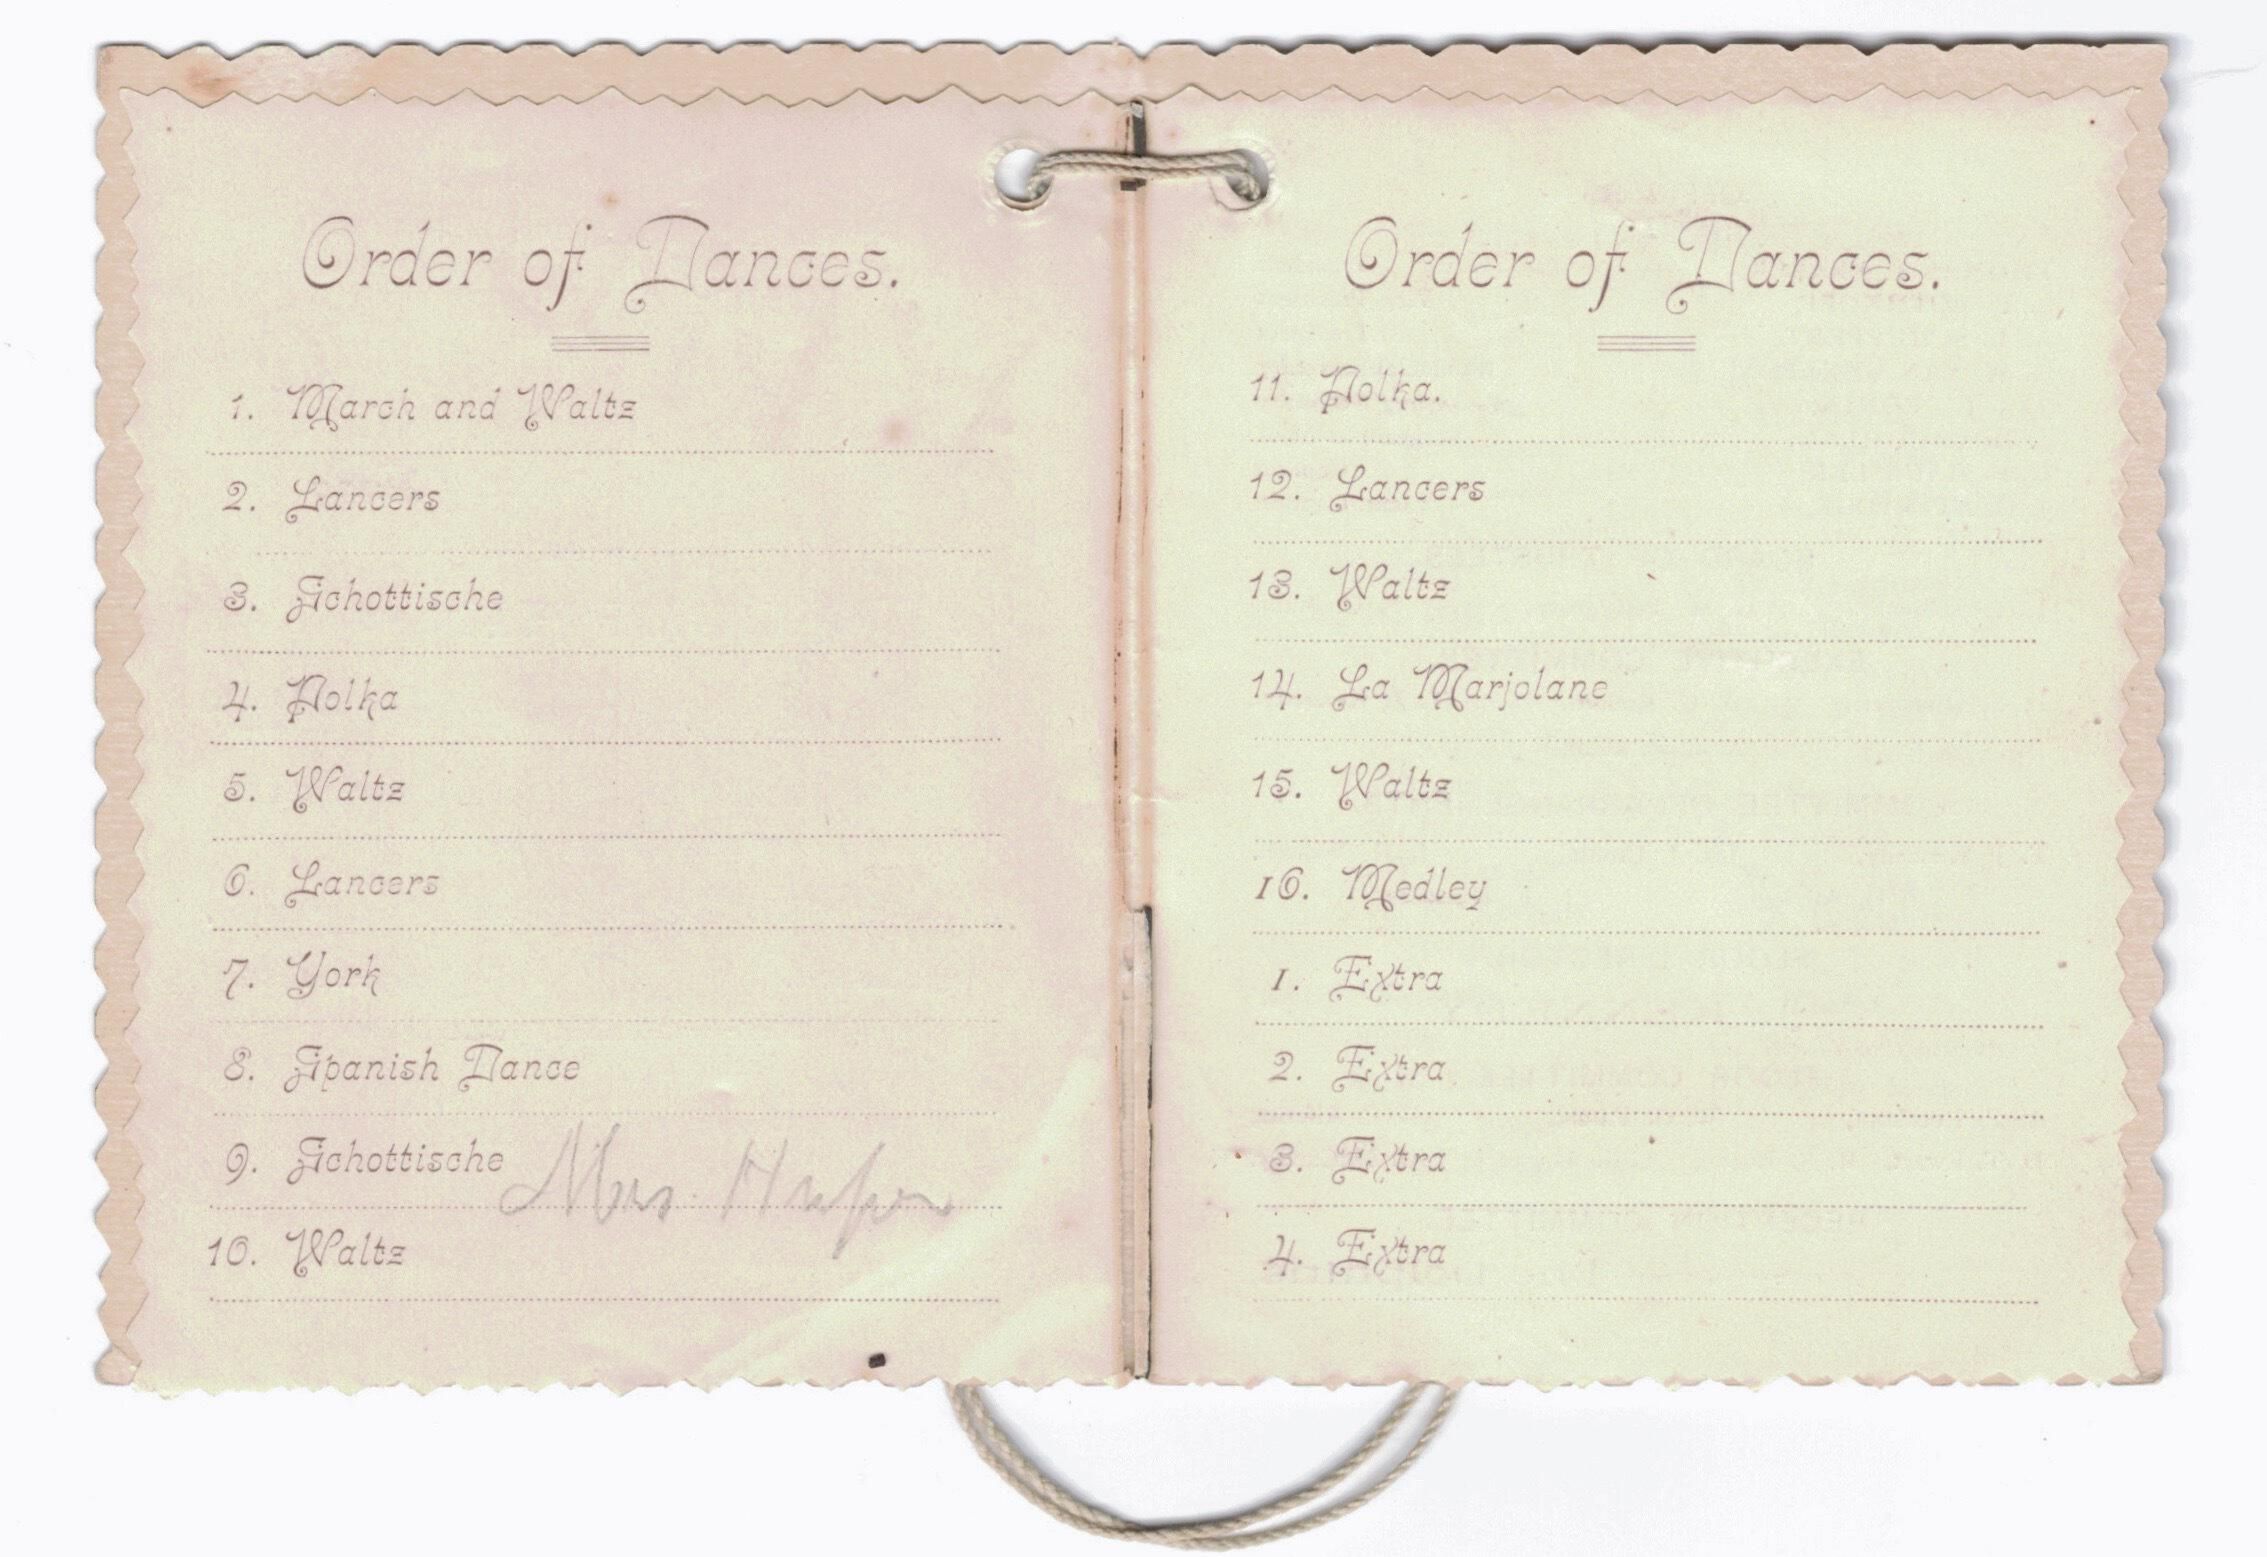 Order of Dances.
1. March and Waltz
2. Lancers
3. Schottische
4. Polka
5. Waltz
6. Lancers
7. York
8. Spanish Dance
9. Schottische
10. Waltz
Order of Dances.
11. Polka.
12. Lancers
13. Waltz
14. La Marjolane
15. Waltz
16. Medley
1. Extra
2. Extra
3. Extra
4. Extra